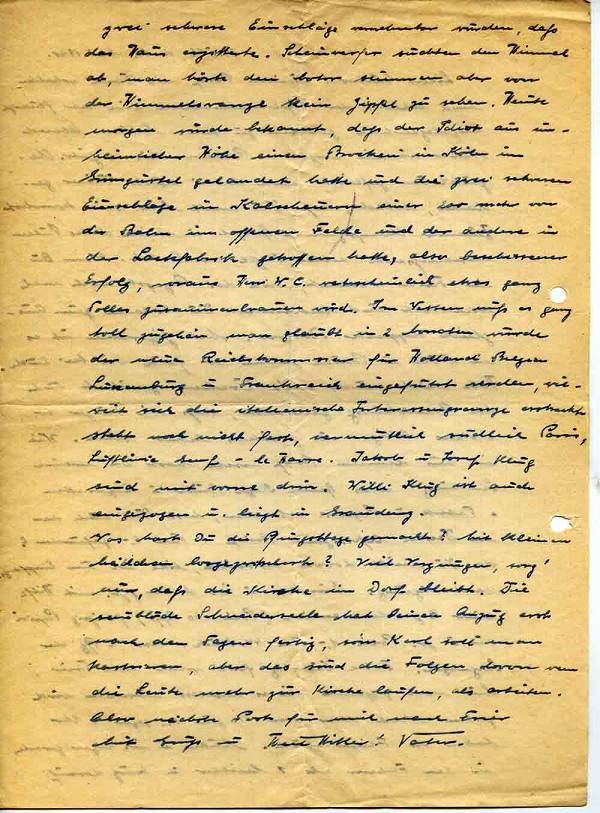 zwei schwere Einschläge vernehmbar wurden, daß
das Haus erzitterte. Scheinwerfer suchten den Himmel
ab, man hörte den Motor summen aber von
der Himmelswanze kein Zippel zu sehen. Heute
morgen wurde bekannt, daß der Idiot aus un-
heimlicher Höhe einen Brocken in Köln im
Grüngürtel gelandet hatte und die zwei schweren
Einschläge in Kalscheuern einer 200 mehr von
der Bahn im offenen Felde und der andere in
der Lackfabrik getroffen hatte, also beschissener
Erfolg, woraus Herr W.C. wahrscheinlich etwas ganz
Tolles zusammenbrauen wird. Im Westen muß es ganz
toll zugehen man glaubt in 2 Monaten würde
der neue Reichskommissar für Holland Belgien
Luxemburg u Frankreich eingeführt werden, wie-
weit sich die italienische Interessengrenze erstreckt
steht noch nicht fest, vermutlich südlich Paris,
Luftlinie Genf - le Havre. Jakob u Josef Klug
sind mit vorne drin. Willi Klug ist auch
eingezogen u. liegt in Graudenz.
Was hast Du die Pfingsttage gemacht? Mit kleinen
Mädchen Viel Vergnügen, sorg'
nur, daß die Kirche im Dorf bleibt. Die
saublöde Schneiderseele hat Deinen Anzug erst
nach den Tagen fertig, so'n Kerl soll man
kastrieren, aber das sind die Folgen davon wenn
die Leute mehr zur Kirche laufen, als arbeiten.
Also nächste Post für mich nach Trier
Mit Gruß u Heil Hitler! Vater.